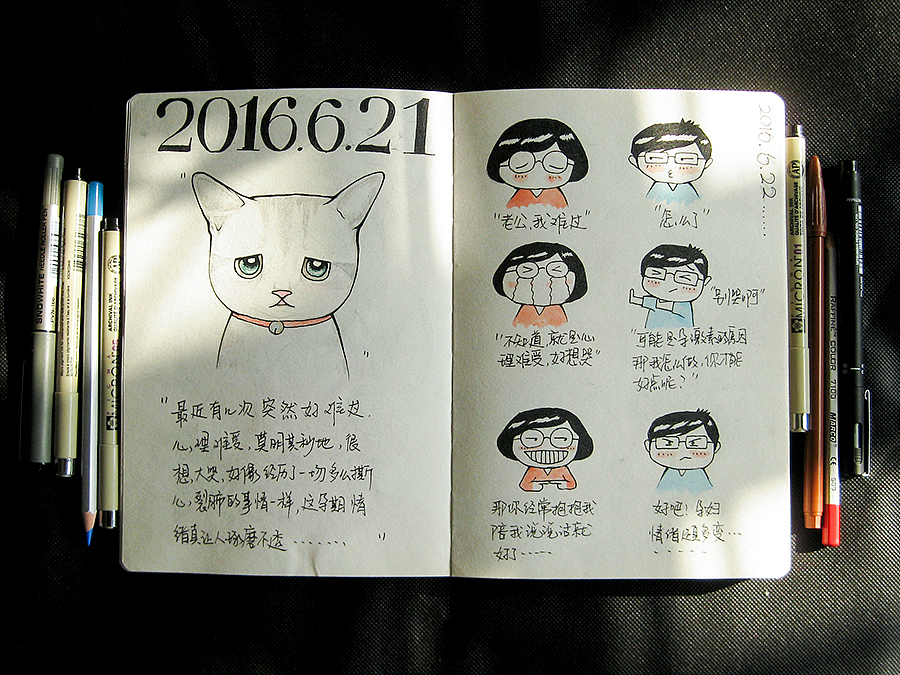 2016.6.21
"最近有几次突然好难过.
心理难受,莫明其秒地,很
想大哭,好像经历了一切多么撕
心裂肺的事情一样,这孕期情
绪真让人琢磨不透……"
2016.6.22……
"老公,我难过"
"怎么了"
"不知道,就是心
理难受,好想哭"
"别哭啊
可能是孕激素的原因
那我怎么做,你才能
好点呢?"
那你经常抱抱我
陪我说说话就
好了……
好吧!孕妇
情绪颇多变…
……
ARCHIVAL INK
MICRON
MICRON 01
RAFFINE COLOR 7100 MARCO